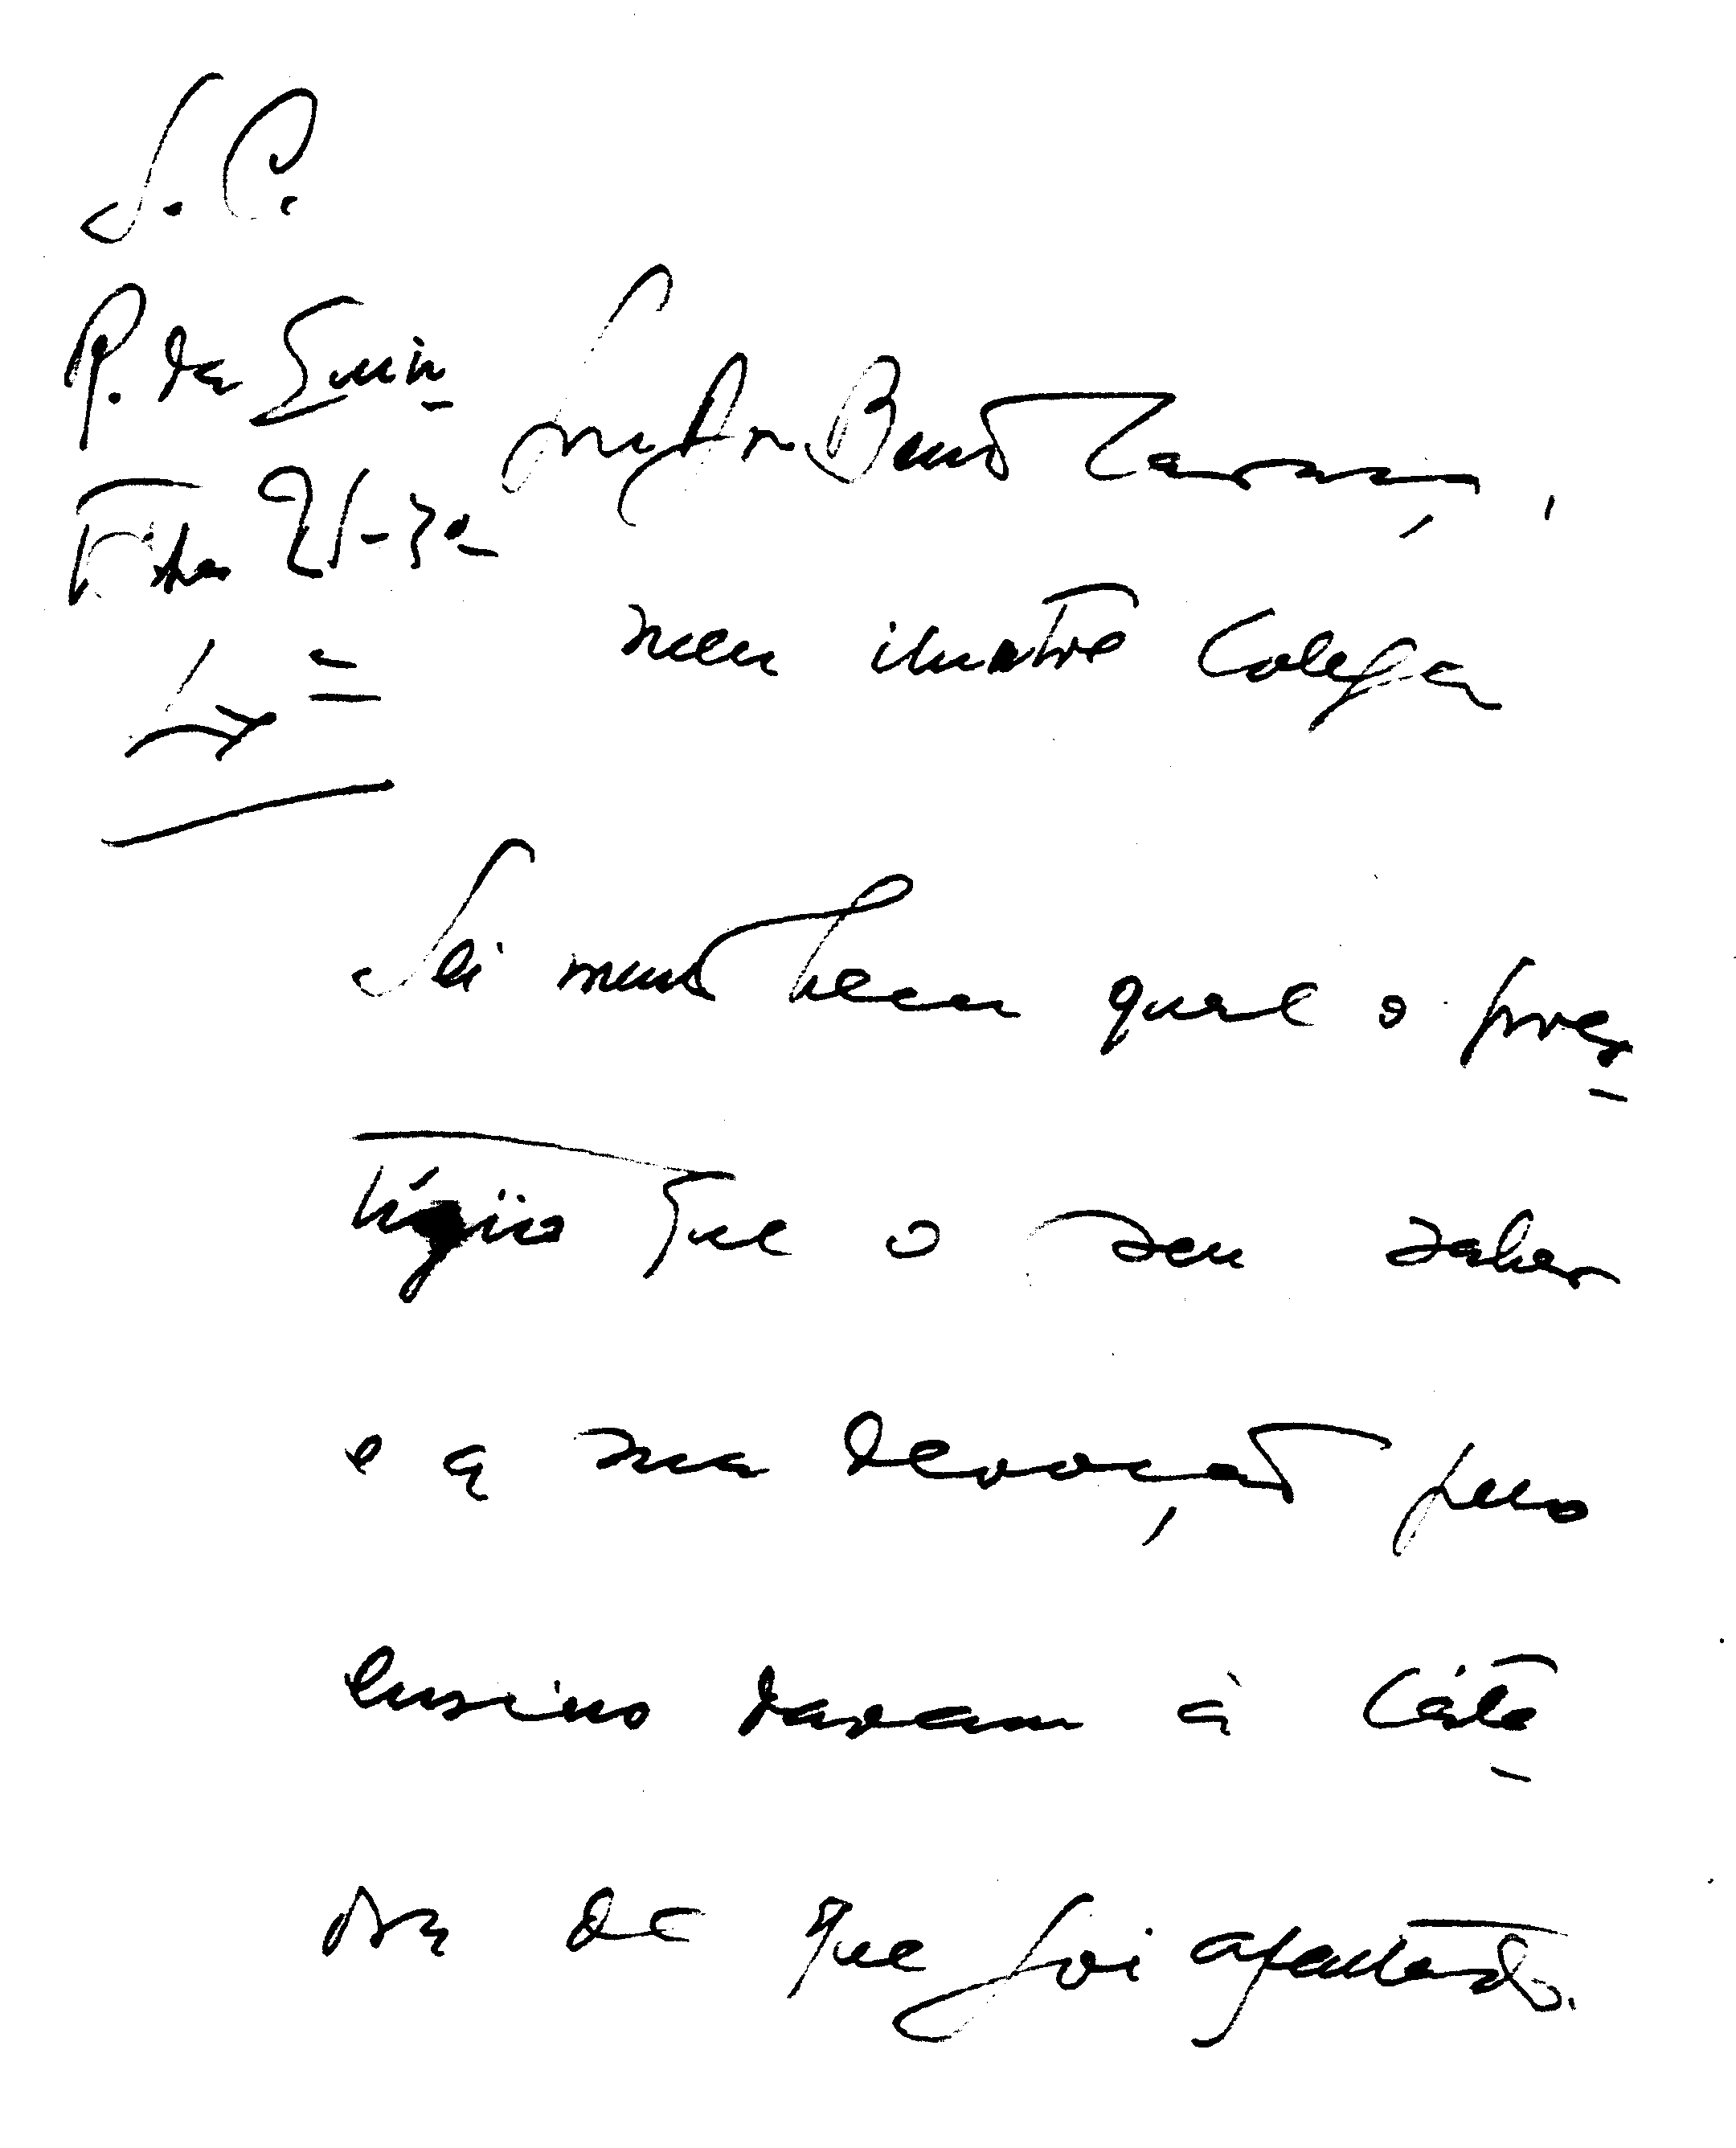 S. C.
R. da Quin-
tinha 21-3º
Lx=
Snr. Dr. Bento Caraça,
meu ilustre Colega
Sei muito bem qual o pres-
tígio que o seu saber
e a sua devoção pelo
ensino davam à Cáte-
dra de que foi afastado.